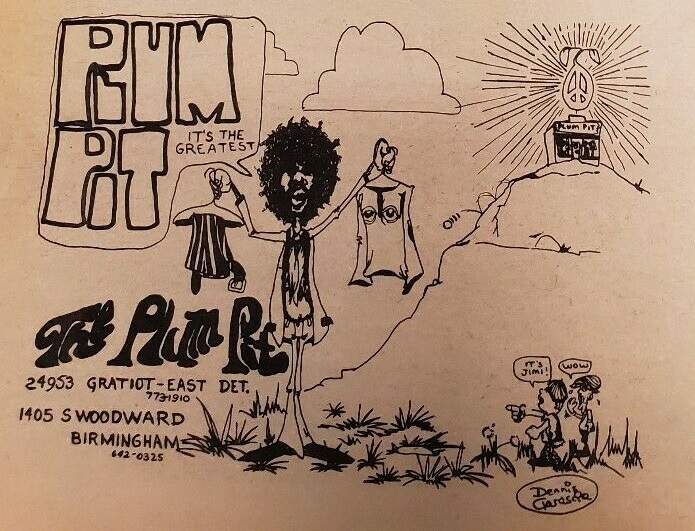 PLUM
PIT
IT'S THE
GREATEST
PLUM PIT
The Plum Pit
24953 GRATIOT-EAST DET.
773-1910
1405 S WOODWARD
BIRMINGHAM
642-0325
IT'S
JIMI!
WOW
Dennis